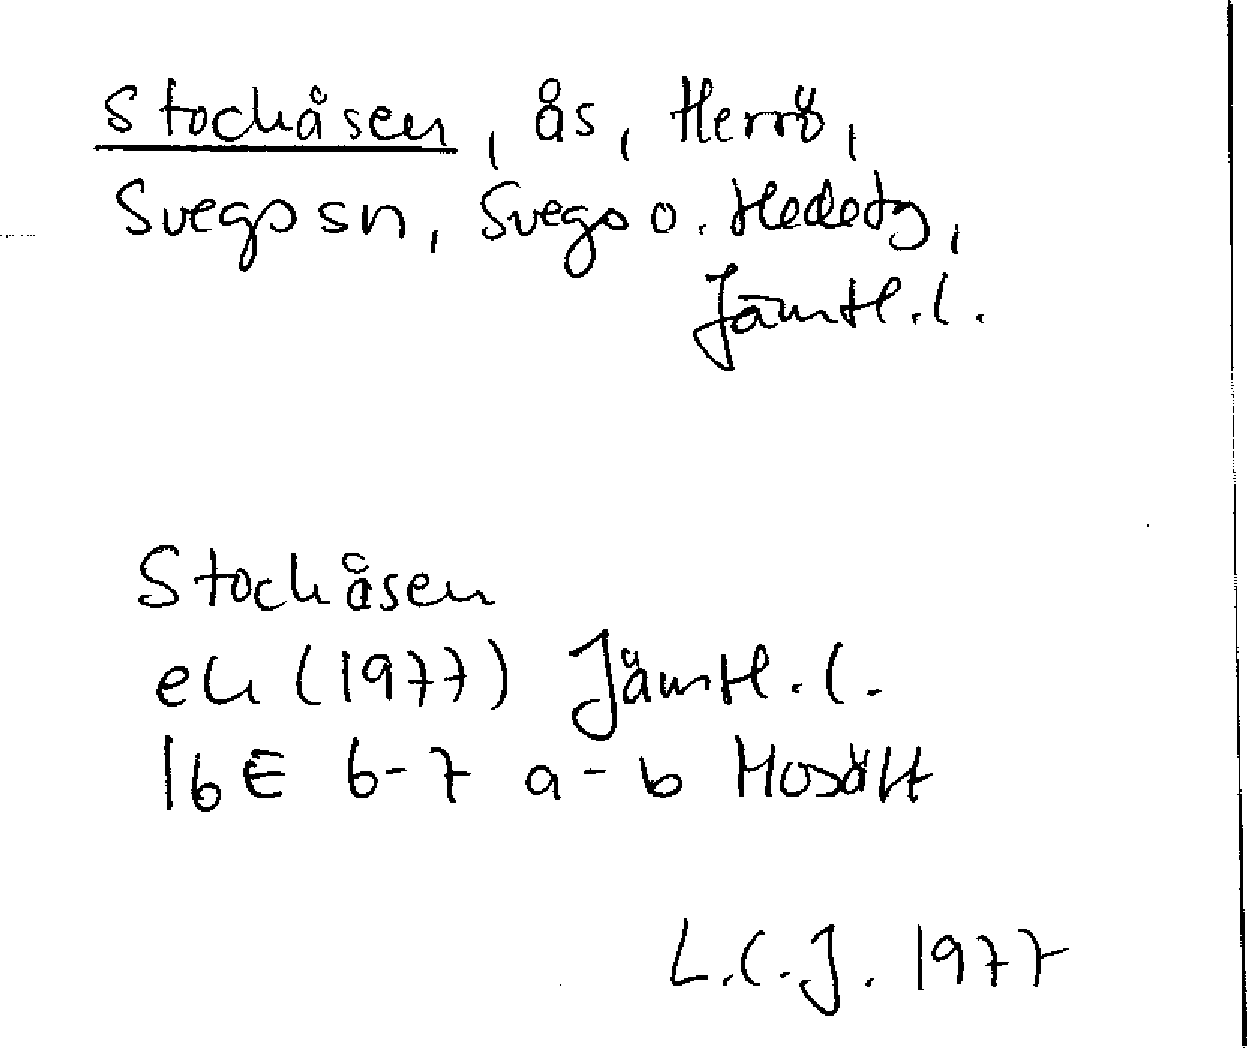 Stockåsen, ås, Herrö,
Svegs sn, Svegs o. Hedetg,
Jämtl. l.
Stockåsen
ek (1977) Jämtl. l.
16E 6-7 a-b Mosätt
L.C.J. 1977